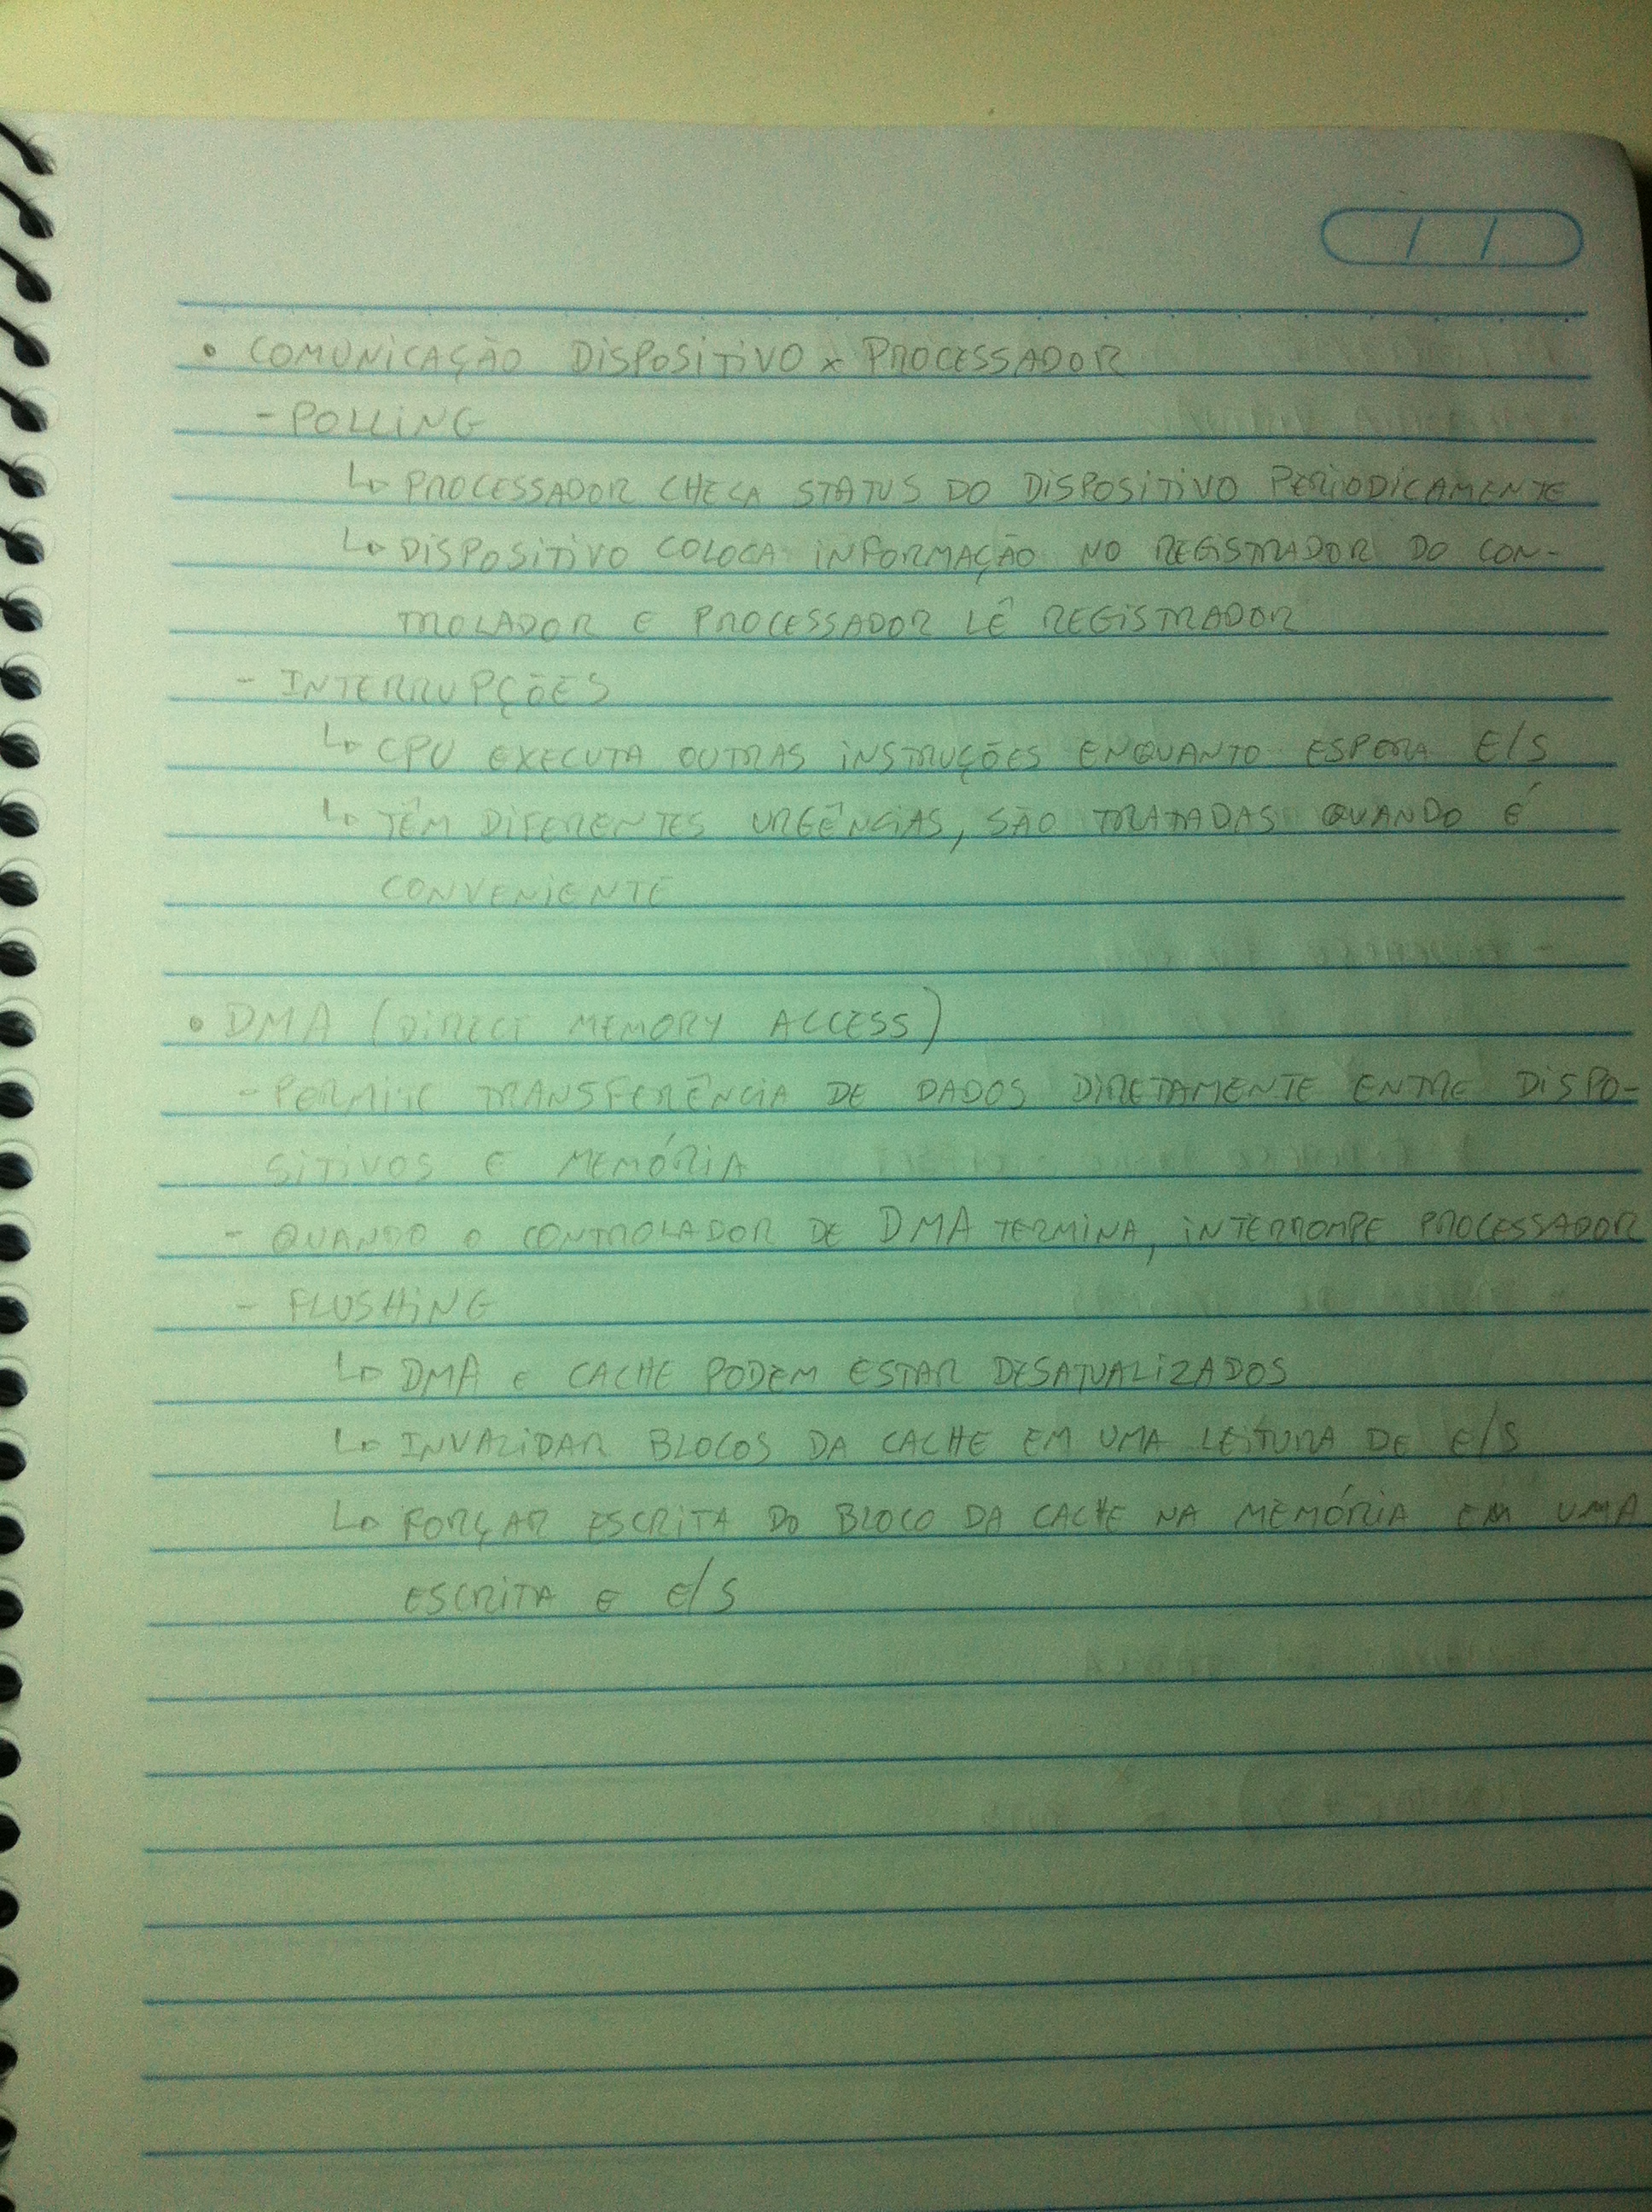 • COMUNICAÇÃO DISPOSITIVO x PROCESSADOR
- POLLING
↳ PROCESSADOR CHECA STATUS DO DISPOSITIVO PERIODICAMENTE
↳ DISPOSITIVO COLOCA INFORMAÇÃO NO REGISTRADOR DO CON-
TROLADOR E PROCESSADOR LÊ REGISTRADOR
- INTERRUPÇÕES
↳ CPU EXECUTA OUTRAS INSTRUÇÕES ENQUANTO ESPERA E/S
↳ TÊM DIFERENTES URGÊNCIAS, SÃO TRATADAS QUANDO É
CONVENIENTE
• DMA (DIRECT MEMORY ACCESS)
- PERMITE TRANSFERÊNCIA DE DADOS DIRETAMENTE ENTRE DISPO-
SITIVOS E MEMÓRIA
- QUANDO O CONTROLADOR DE DMA TERMINA, INTERROMPE PROCESSADOR
- FLUSHING
↳ DMA E CACHE PODEM ESTAR DESATUALIZADOS
↳ INVALIDAR BLOCOS DA CACHE EM UMA LEITURA DE E/S
↳ FORÇAR ESCRITA DO BLOCO DA CACHE NA MEMÓRIA EM UMA
ESCRITA E E/S